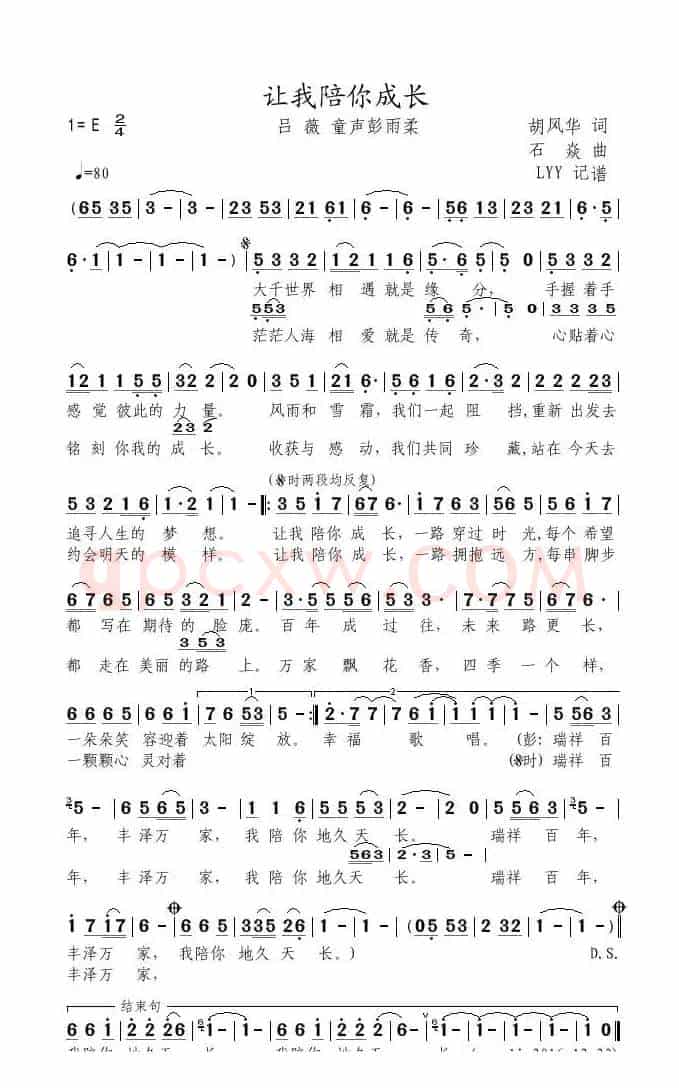 让我陪你成长
1=E 2/4 吕 薇 童声彭雨柔 胡风华 词
石 焱 曲
♩=80 LYY 记谱
(65 35 | 3 - | 3 - | 23 53 | 21 61 | 6 - | 6 - | 56 13 | 23 21 | 6·5 |
6·1 | 1 - | 1 - | 1 - ) | 5332 | 12116 | 5·65 | 5 0 | 5332 |
大千世界 相 遇就是缘 分, 手握着手
553 565·5 0 3335
茫茫人海 相 爱就是传 奇, 心贴着心
121155 | 322 | 20 | 351 | 216· | 5616 | 2·32 | 22223 |
感 觉 彼此的 力 量。 风雨和 雪 霜,我们一起 阻 挡,重新 出发去
232
铭 刻 你我的 成 长。 收获与 感 动,我们共同 珍 藏,站在 今天去
(𝄋时两段均反复)
53216 | 1·21 | 1 - :|: 3517 | 676· | 1763 | 565 | 5617 |
追寻人生的 梦 想。 让我 陪你 成 长,一路 穿过 时 光,每个 希望
约会明天的 模 样。 让我 陪你 成 长,一路 拥抱 远 方,每串 脚步
6765 | 65321 | 2 - | 3·5556 | 5 - | 5·6765 | 676· |
都 写在 期待的 脸 庞。 百年 成 过 往, 未来 路更 长,
353
都 走在 美丽 的路 上。 万家 飘 花 香, 四季 一个 样,
1. 2.
6665 | 661 | 7653 | 5 - :| 2·77 | 7611 | 111 | 1 - | 5563 |
一朵朵笑 容迎着 太阳 绽 放。 幸福 歌 唱。 (彭: 瑞祥 百
一颗颗心 灵对着 (𝄋时) 瑞祥 百
35 - | 6565 | 3 - | 116 | 5553 | 2 - | 2 - | 5563 | 35 - |
年, 丰泽万 家, 我 陪你 地久天 长。 瑞祥 百 年,
563 2·3 5 -
年, 丰泽万 家, 我 陪你 地久天 长。 瑞祥 百 年,
1717 | 6 - | 665 | 33526 | 1 - | 1 - | (0553 | 232 | 1 - | 1 - )‖
丰泽万 家, 我陪你 地久天 长。) D.S.
丰泽万 家,
结束句
661 | 2226 | 61 - | 1 - | 661 | 2226 | 61 - | 1 - | 1 - | 10 ‖